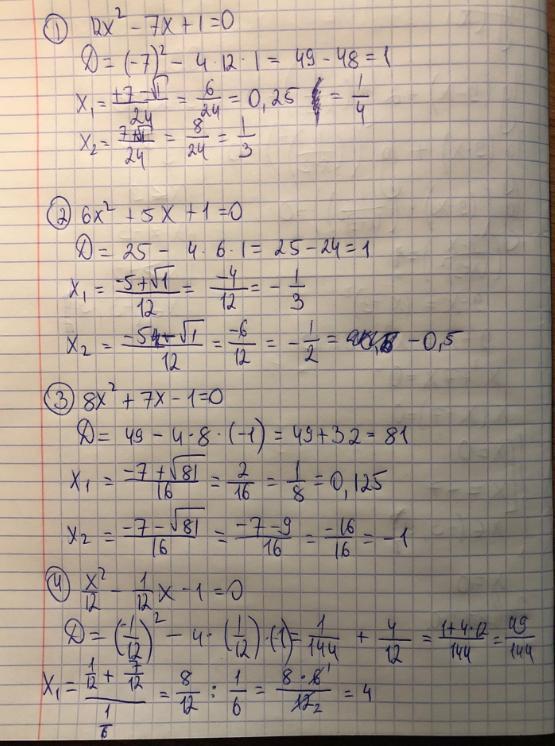 ① 12x² - 7x + 1 = 0
D = (-7)² - 4 · 12 · 1 = 49 - 48 = 1
x₁ = (+7 - √1)/24 = 6/24 = 0,25 = 1/4
x₂ = (7 + √1)/24 = 8/24 = 1/3
② 6x² + 5x + 1 = 0
D = 25 - 4 · 6 · 1 = 25 - 24 = 1
x₁ = (-5 + √1)/12 = -4/12 = - 1/3
x₂ = (-5 - √1)/12 = -6/12 = - 1/2 = -0,5
③ 8x² + 7x - 1 = 0
D = 49 - 4 · 8 · (-1) = 49 + 32 = 81
x₁ = (-7 + √81)/16 = 2/16 = 1/8 = 0,125
x₂ = (-7 - √81)/16 = (-7 - 9)/16 = -16/16 = -1
④ x²/12 - 1/12 x - 1 = 0
D = (-1/12)² - 4 · (1/12) · (-1) = 1/144 + 4/12 = (1 + 4 · 12)/144 = 49/144
x₁ = (1/12 + 7/12)/(1/6) = 8/12 : 1/6 = (8 · 6 1)/(12 2) = 4